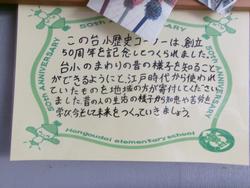 50th ANNIVERSARY
この台小歴史コーナーは、創立
50周年を記念してつくられました。
台小のまわりの昔の様子を知ること
ができるようにと、江戸時代から使われ
ていたものを地域の方が寄付してください
ました。昔の人の生活の様子から知恵や苦労を
学び、今そして未来をつくっていきましょう。
50th ANNIVERSARY
50th ANNIVERSARY
Hongoudai elementary school